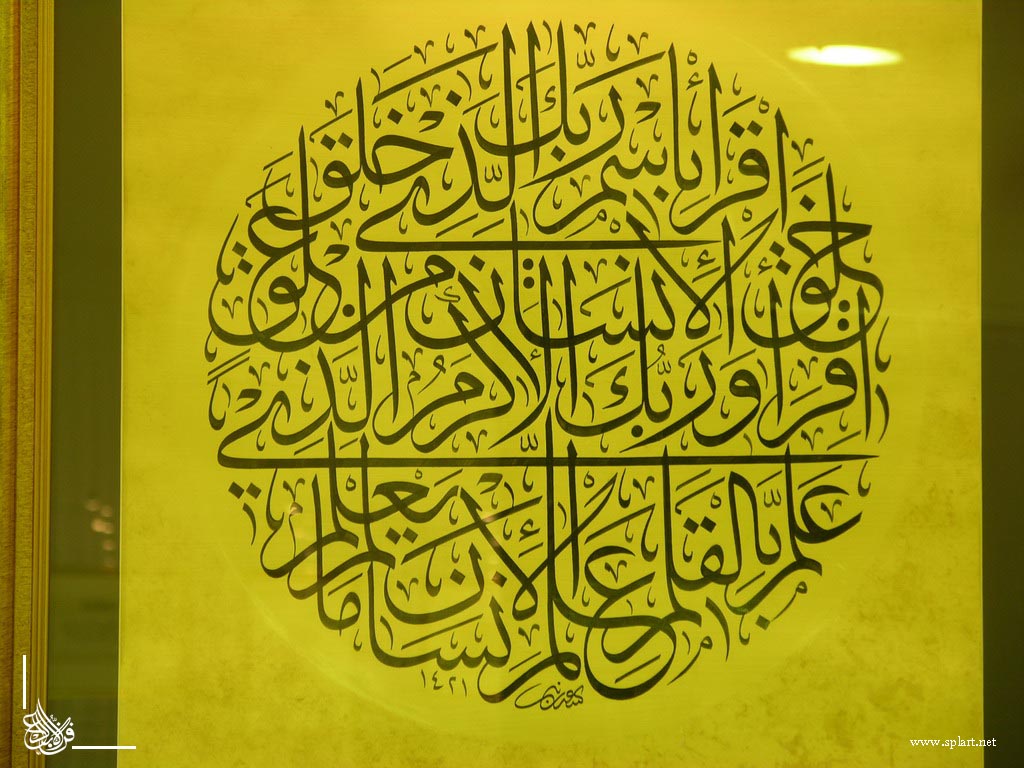 اقرأ باسم ربك الذي خلق
خلق الإنسان من علق
اقرأ وربك الأكرم الذي
علم بالقلم علم الإنسان ما لم يعلم
١٤٢١
www.splart.net